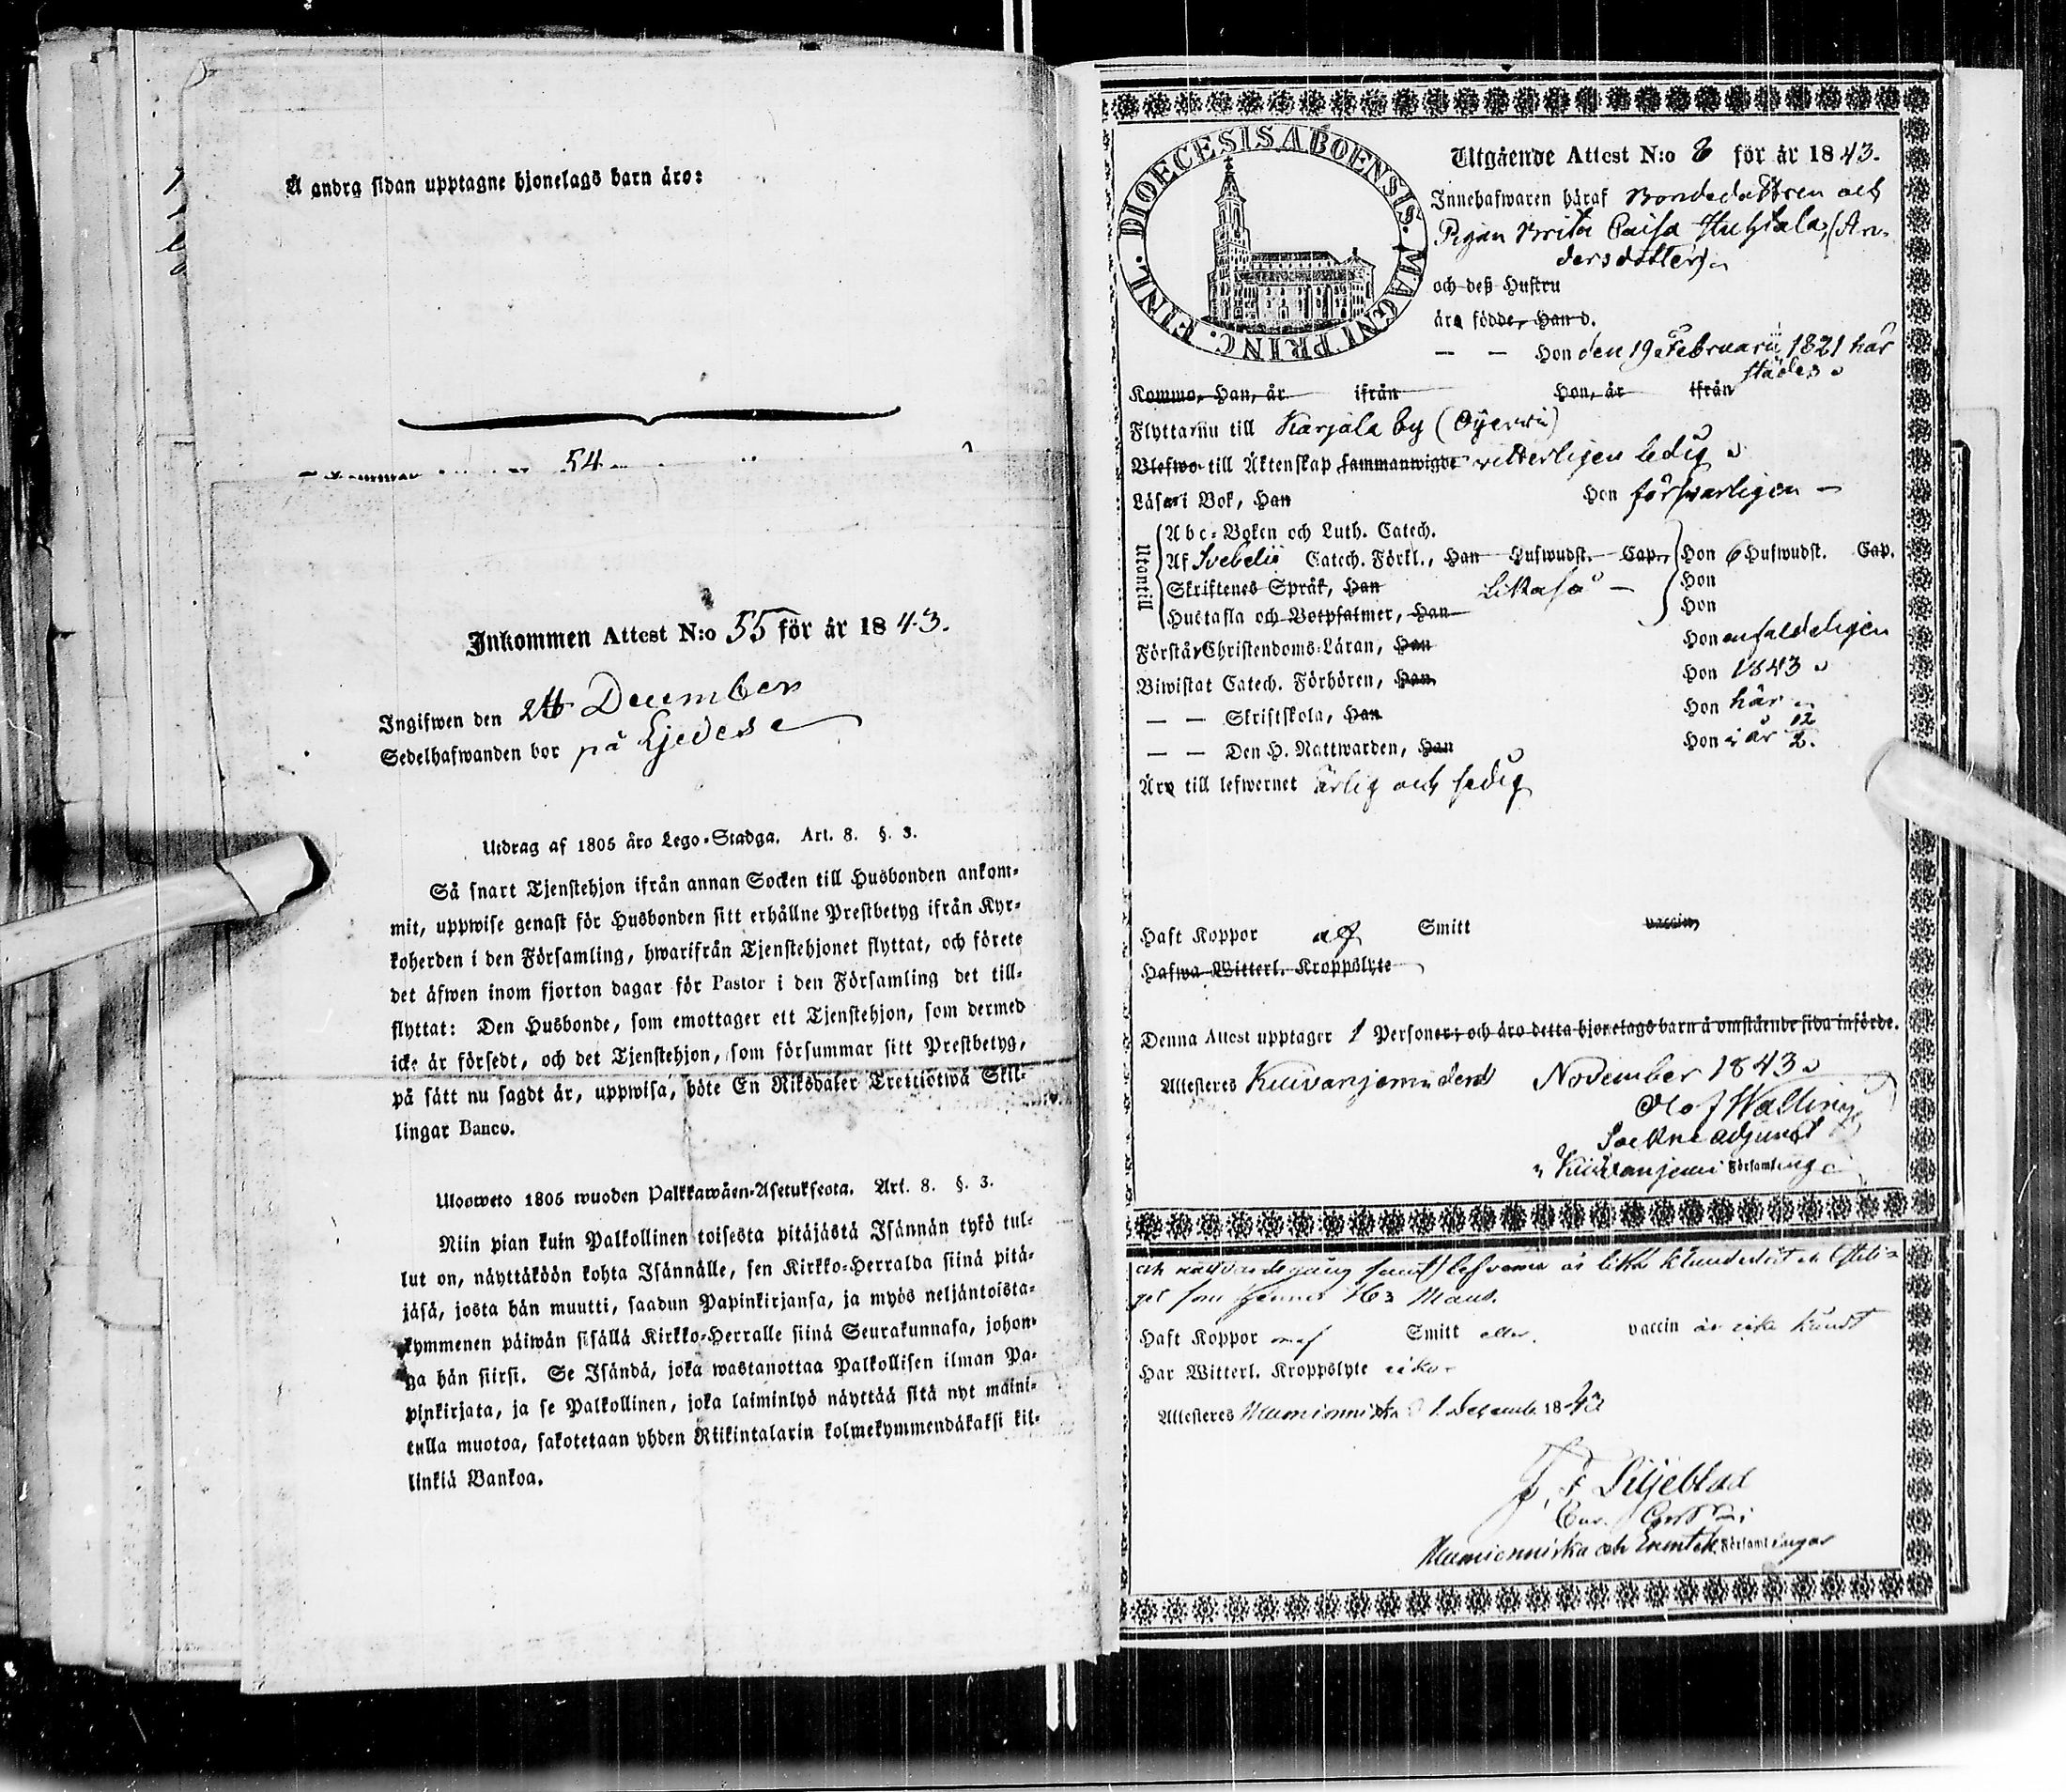 Å andra sidan upptagne hjonelags barn äro:
54
Inkommen Attest N:o 55 för år 1843.
Ingifwen den December
Sedelhafwanden bor på
Utdrag af 1805 åro Lego-Stadga. Art. 8. §. 3.
Så snart Tjenstehjon ifrån annan Socken till Husbonden ankom-
mit, uppwise genast för Husbonden sitt erhållne Prestbetyg ifrån Kyr-
koherden i den Församling, hwarifrån Tjenstehjonet flyttat, och förete
det äfwen inom fjorton dagar för Pastor i den Församling det till-
flyttat: Den Husbonde, som emottager ett Tjenstehjon, som dermed
icke är försedt, och det Tjenstehjon, som försummar sitt Prestbetyg,
på sätt nu sagdt är, uppwisa, böte En Riksdaler Trettiotwå Skil-
lingar Banco.
Ulosweto 1805 wuoden Palkkawäen-Asetuksesta. Art. 8. §. 3.
Niin pian kuin Palkollinen toisesta pitäjästä Isännän tykö tul-
lut on, näyttäköön kohta Isännälle, sen Kirkko-Herralda siinä pitä-
jäsä, josta hän muutti, saadun Papinkirjansa, ja myös neljäntoista-
kymmenen päiwän sisällä Kirkko-Herralle siinä Seurakunnasa, johon-
ga hän siirsi. Se Isändä, joka wastanottaa Palkollisen ilman Pa-
pinkirjata, ja se Palkollinen, joka laiminlyö näyttää sitä nyt maini-
tulla muotoa, sakotetaan yhden Riikintalarin kolmekymmendäkaksi kil-
linkiä Bankoa.
DIOECESIS ABOENSIS. MAGNI PRINC. FINL.
Utgående Attest N:o 8 för år 1843.
Innehafwaren häraf Bondedottren och
Pigan Brita Caisa Huhtala, (An-
dersdotter)
och deß Hustru
äro födde, Han d.
— — Hon den 19 Februarii 1821 här
städes
Komma, Han, år ifrån Hon, år ifrån
Flyttar nu till Karjala by
Blefwo till Äktenskap sammanwigde witterligen ledig
Läsa i Bok, Han Hon förswarligen —
Utantill
Abc-Boken och Luth. Catech.
Af Svebelii Catech. Förkl., Han Hufwudst. Cap. Hon 6 Hufwudst. Cap.
Skriftenes Språk, Han Likaså — Hon
Hustafla och Botpsalmer, Han Hon
Förstår Christendoms-Läran, Han Hon enfaldeligen
Biwistat Catech. Förhören, Han Hon 1843
— — Skriftskola, Han Hon här
— — Den H. Nattwarden, Han Hon i år
Äro till lefwernet ärlig och sedig
Haft Koppor Smitt vaccin,
Hafwa Witterl. Kroppslyte
Denna Attest upptager 1 Personer; och äro detta hjonelags barn å omstående sida införde.
Attesteres November 1843
Olof Walling
Sockne adjunct
i Församling
Haft Koppor Smitt eller vaccin är icke kändt
Har Witterl. Kroppslyte icke
Attesteres Decemb. 1843
Liljeblad
och Församlingar